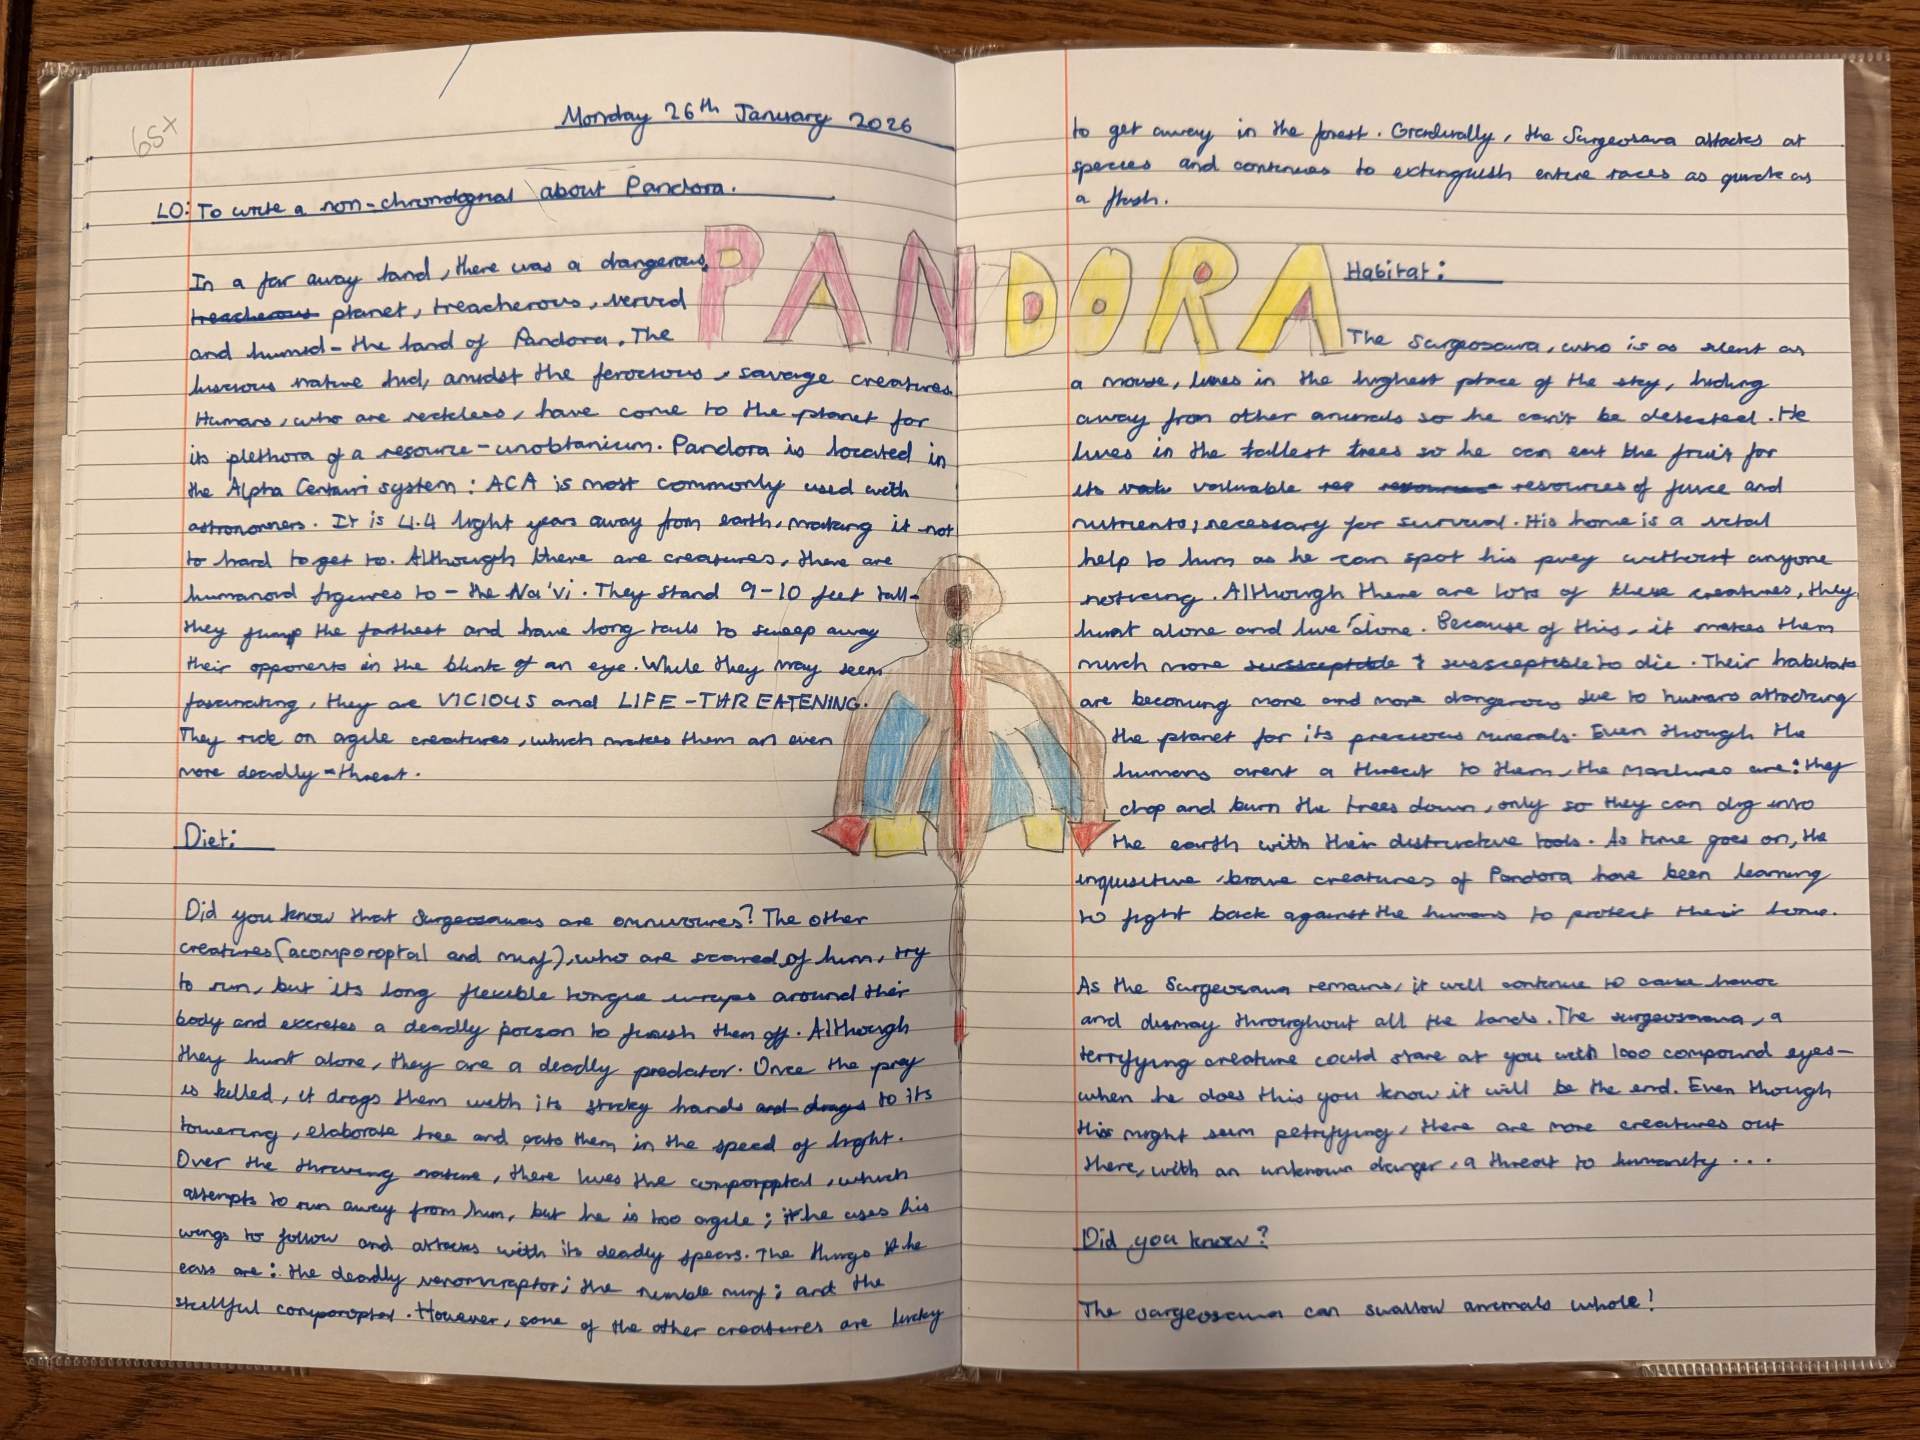 Monday 26th January 2026
LO: To write a non-chronological about Pandora.
PANDORA
In a far away land, there was a dangerous,
treacherous planet, treacherous,
and humid - the land of Pandora. The
luscious nature hid, amidst the ferocious, savage creatures.
Humans, who are reckless, have come to the planet for
its plethora of a resource - unobtanium. Pandora is located in
the Alpha Centauri system: ACA is most commonly used with
astronomers. It is 4.4 light years away from earth, making it not
to hard to get to. Although there are creatures, there are
humanoid figures to - the Na'vi. They stand 9-10 feet tall -
they jump the farthest and have long tails to sweep away
their opponents in the blink of an eye. While they may seem
fascinating, they are VICIOUS and LIFE-THREATENING.
They ride on agile creatures, which makes them an even
more deadly threat.
Diet:
Did you know that Surgeosauas are omnivoures? The other
creatures (acomporoptal and murf), who are scared of him, try
to run, but its long flexible tongue wraps around their
body and excretes a deadly poison to finish them off. Although
they hunt alone, they are a deadly predator. Once the prey
is killed, it drags them with its sticky hands and drags to its
towering, elaborate tree and eats them in the speed of light.
Over the thriving nature, there lives the comporpptal, which
attempts to run away from him, but he is too agile; he uses his
wings to follow and attacks with its deadly spears. The things he
eats are: the deadly venomraptor; the nimble murf; and the
skillful comporoptal. However, some of the other creatures are lucky
to get away in the forest. Gradually, the Surgeosaua attacks at
species and continues to extinguish entire races as quick as
a flash.
Habitat:
The Surgeosaua, who is as silent as
a mouse, lives in the highest place of the sky, hiding
away from other animals so he can't be detected. He
lives in the tallest trees so he can eat the fruit for
its valuable resources of juice and
nutrients; necessary for survival. His home is a vital
help to him as he can spot his prey without anyone
noticing. Although there are lots of these creatures, they
hunt alone and live alone. Because of this, it makes them
much more susceptible susceptible to die. Their habitats
are becoming more and more dangerous due to humans attacking
the planet for its precious minerals. Even though the
humans arent a threat to them, the machines are: they
chop and burn the trees down, only so they can dig into
the earth with their destructive tools. As time goes on, the
inquisitive, brave creatures of Pandora have been learning
to fight back against the humans to protect their home.
As the Surgeosaua remains, it will continue to cause havoc
and dismay throughout all the lands. The surgeosaua, a
terrifying creature could stare at you with 1000 compound eyes -
when he does this you know it will be the end. Even though
this might seem petrifying, there are more creatures out
there, with an unknown danger, a threat to humanity ...
Did you know?
The surgeosaua can swallow animals whole!